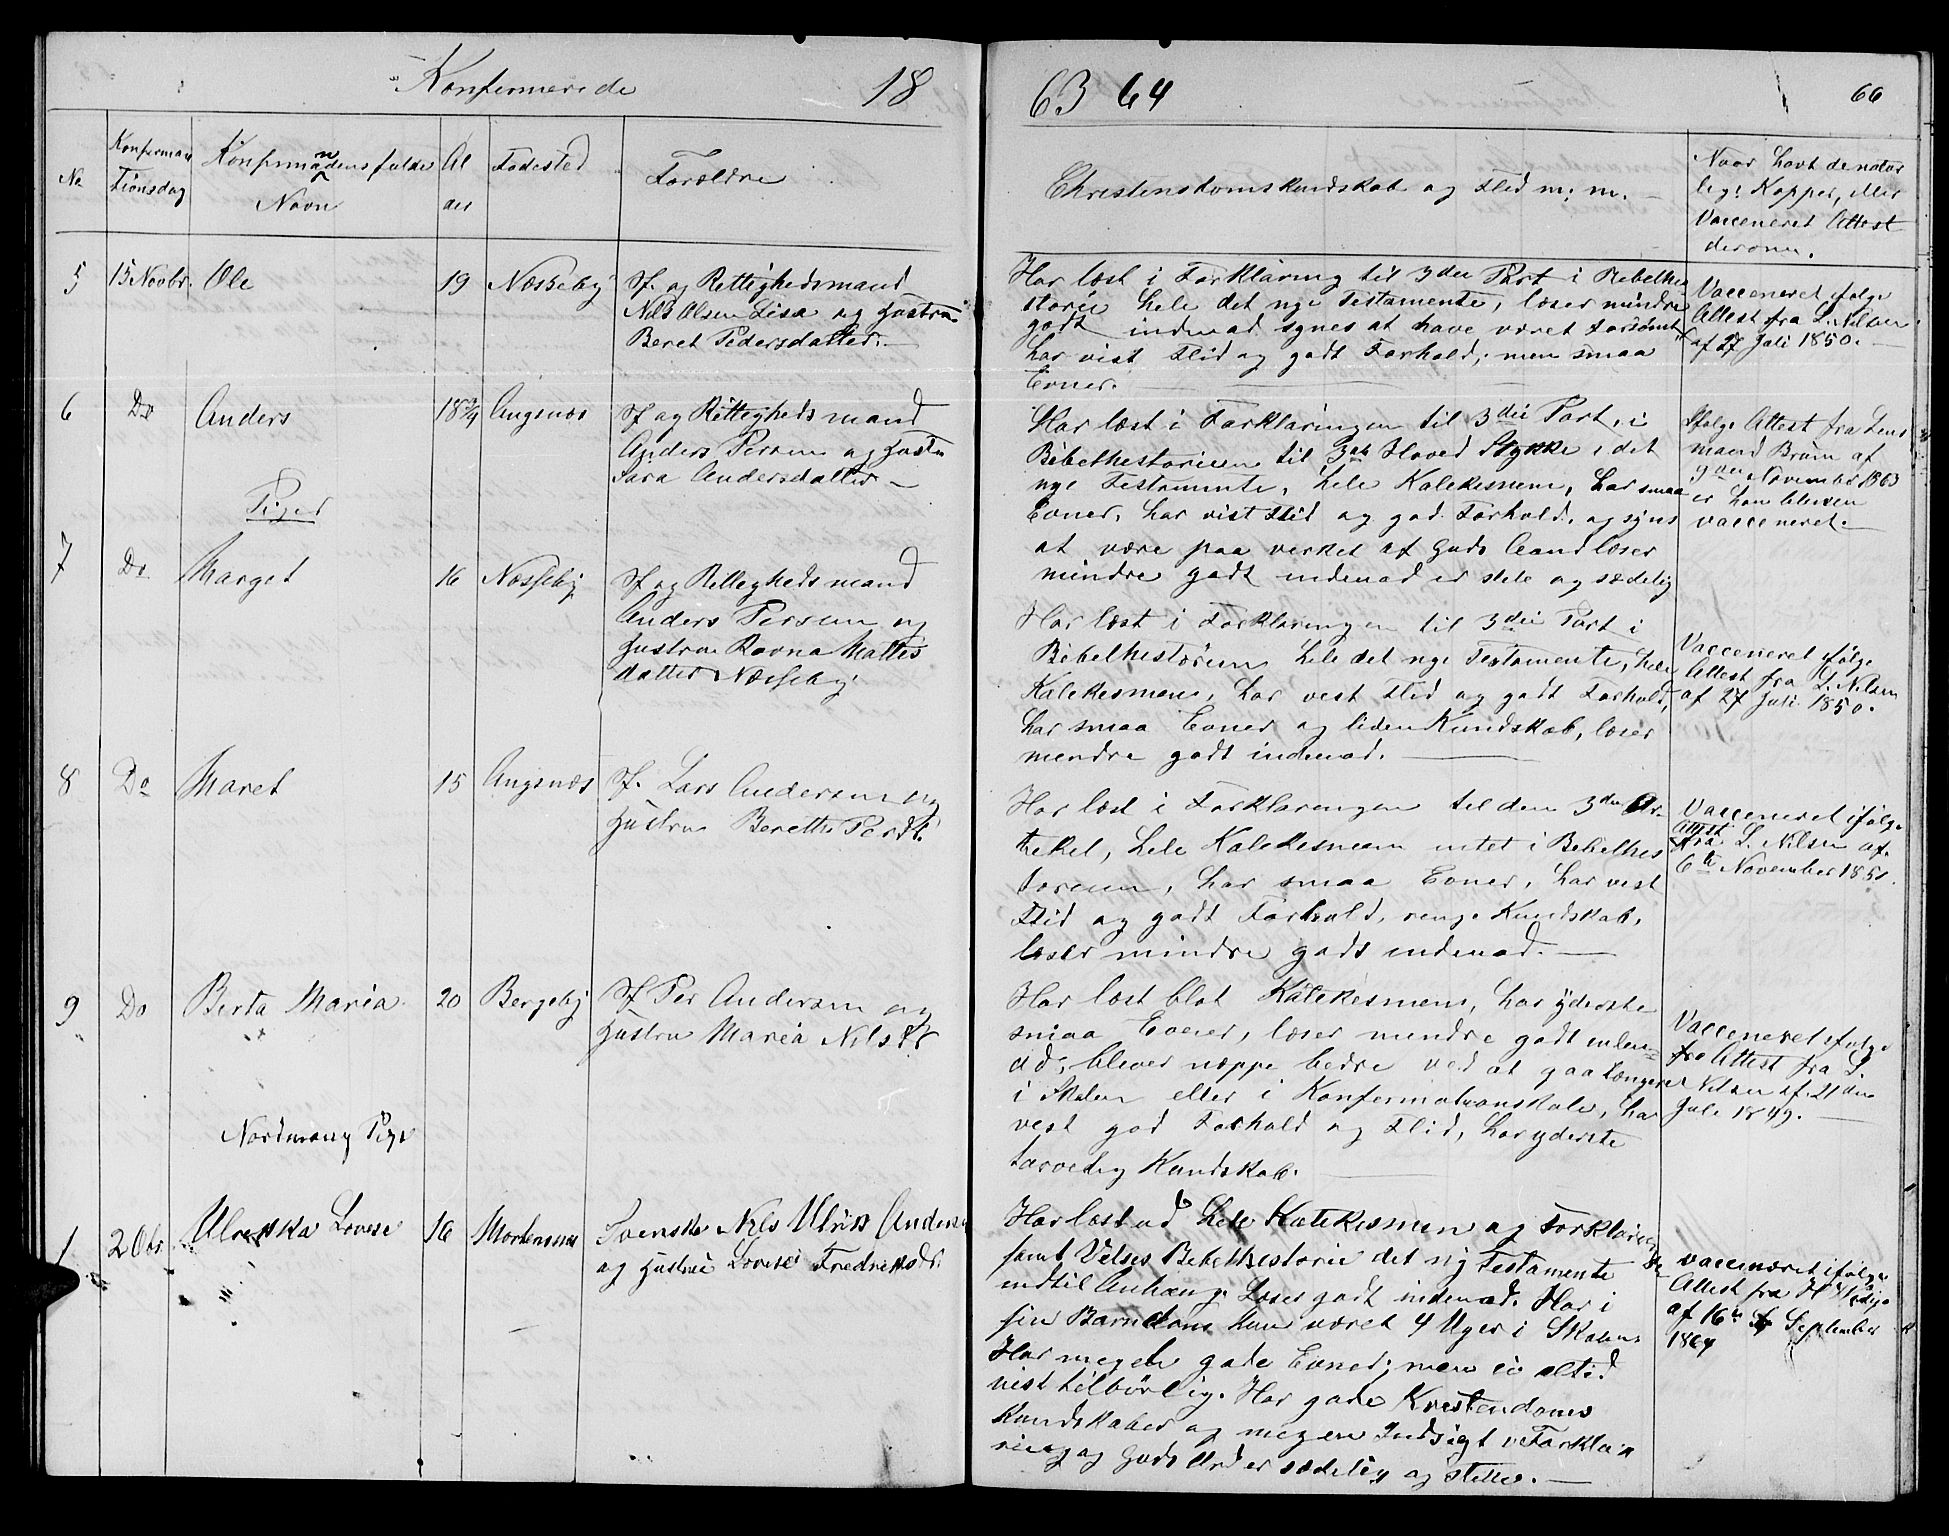 Konfirmerede 18
63 64
66
No
Konfirman
tionsdag
Konfirmandens fulde
Navn
Al
der
Fødested
Forældre
Christendomskundskab og Flid m. m.
Naar havt de natur
lige Kopper, eller
Vacceneret Attest
derom.
5 15 Novbr. Ole 19 Næsseby
Sf. og Rettighedsmand
Nils Olsen Lisa og Hustru
Beret Pedersdatter. —
Har læst i Forklaring til 3die Part i Bibelhi
storie hele det nye Testamente, læser mindre
godt indenad synes at have været forsømt
har vist Flid og godt Forhold, men smaa
Evner. —
Vacceneret ifølge
Attest fra L. Nilsen
af 27 Juli 1850. —
6 Do Anders 18 3/4 Angsnæs
Sf og Rettigheds mand
Anders Persen og Hustru
Sara Andersdatter —
Har læst i Forklaringen til 3die Part, i
Bibelhestorien til 3die Hoved Stykke, det
nye Testamente, hele Katekesmen, har smaa
Evner, har vist Flid og god Forhold, og synes
at være paa verket af Guds Aand læser
mindre godt indenad er stele og sædelig
Ifølge Attest fra Lens
mand Brun af
9den November 1863
er han bleven
vacceneret. —
Piger
7 Do. Marget 16 Næsseby
Sf og Rettigheds mand
Anders Persen og
Hustru Ravna Mattis
datter Næsseby
Har læst i Forklaringen til 3die Part i
Bibelhestorien hele det nye Testamente, hele
Katekesmen, har vest Flid og godt Forhold,
har smaa Evner og liden Kundskab, læser
mendre godt indenad. —
Vacceneret ifølge
Attest fra L. Nilsen
af 27 Juli 1850.
8 Do Maret 15 Angsnæs
Sf. Lars Andersen og
Hustru Berethe Persdt.
Har læst i Forklarengen tel den 3die Ar-
tekel, hele Katekesmen intet i Bebelhes
torien, har smaa Evner, har vest
Flid og godt Forhold, renge Kundskab,
læser mindre godt indenad. —
Vacceneret ifølge
Attest
fra L. Nilsen af
6te November 1851.
9 Do Berta Maria 20 Bergeby
Sf Per Andersen og
Hustru Maria Nilsdt
Har læst blot Katekesmen, har yderste
smaa Evner, læser mendre godt inden-
ad, blever næppe bedre ved at gaa længere
i Skolen eller i Konfermationskole, har
vest god Forhold og Flid, har yderste
tarvelig Kundskab. —
Vacceneret ifølge
Attest fra L.
Nilsen af 21 den
Juli 1849. —
Nordmæng Pige
1 2 Obr. Ulrekka Lovese 16 Mortensnæs
Svenske Nils Ulrik Andersen
og Hustrue Lovese Fredriksdt.
Har læst ud hele Katekesmen og Forklaringen
samt Velses Bebelhestorie det ny Testamente
indtil Anhang. Læser godt indenad. Har i
sin Barndom kun været 4 Uger i Skolen
Har meget gode Evner; men ei altid
vist tilbørlig. Har gode Krestendoms
Kundskaber og megen Indsigt i Forkla
ring og Guds Ord er sædelig og stille. —
vacceneret ifølge
Attest fra H
af 16de September
1864